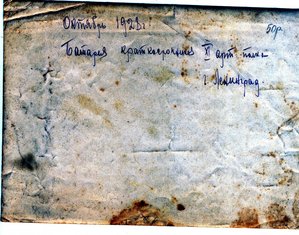 Октябрь 1928г.
50р
Батарея краткосрочников V арт. полка
г. Ленинград.